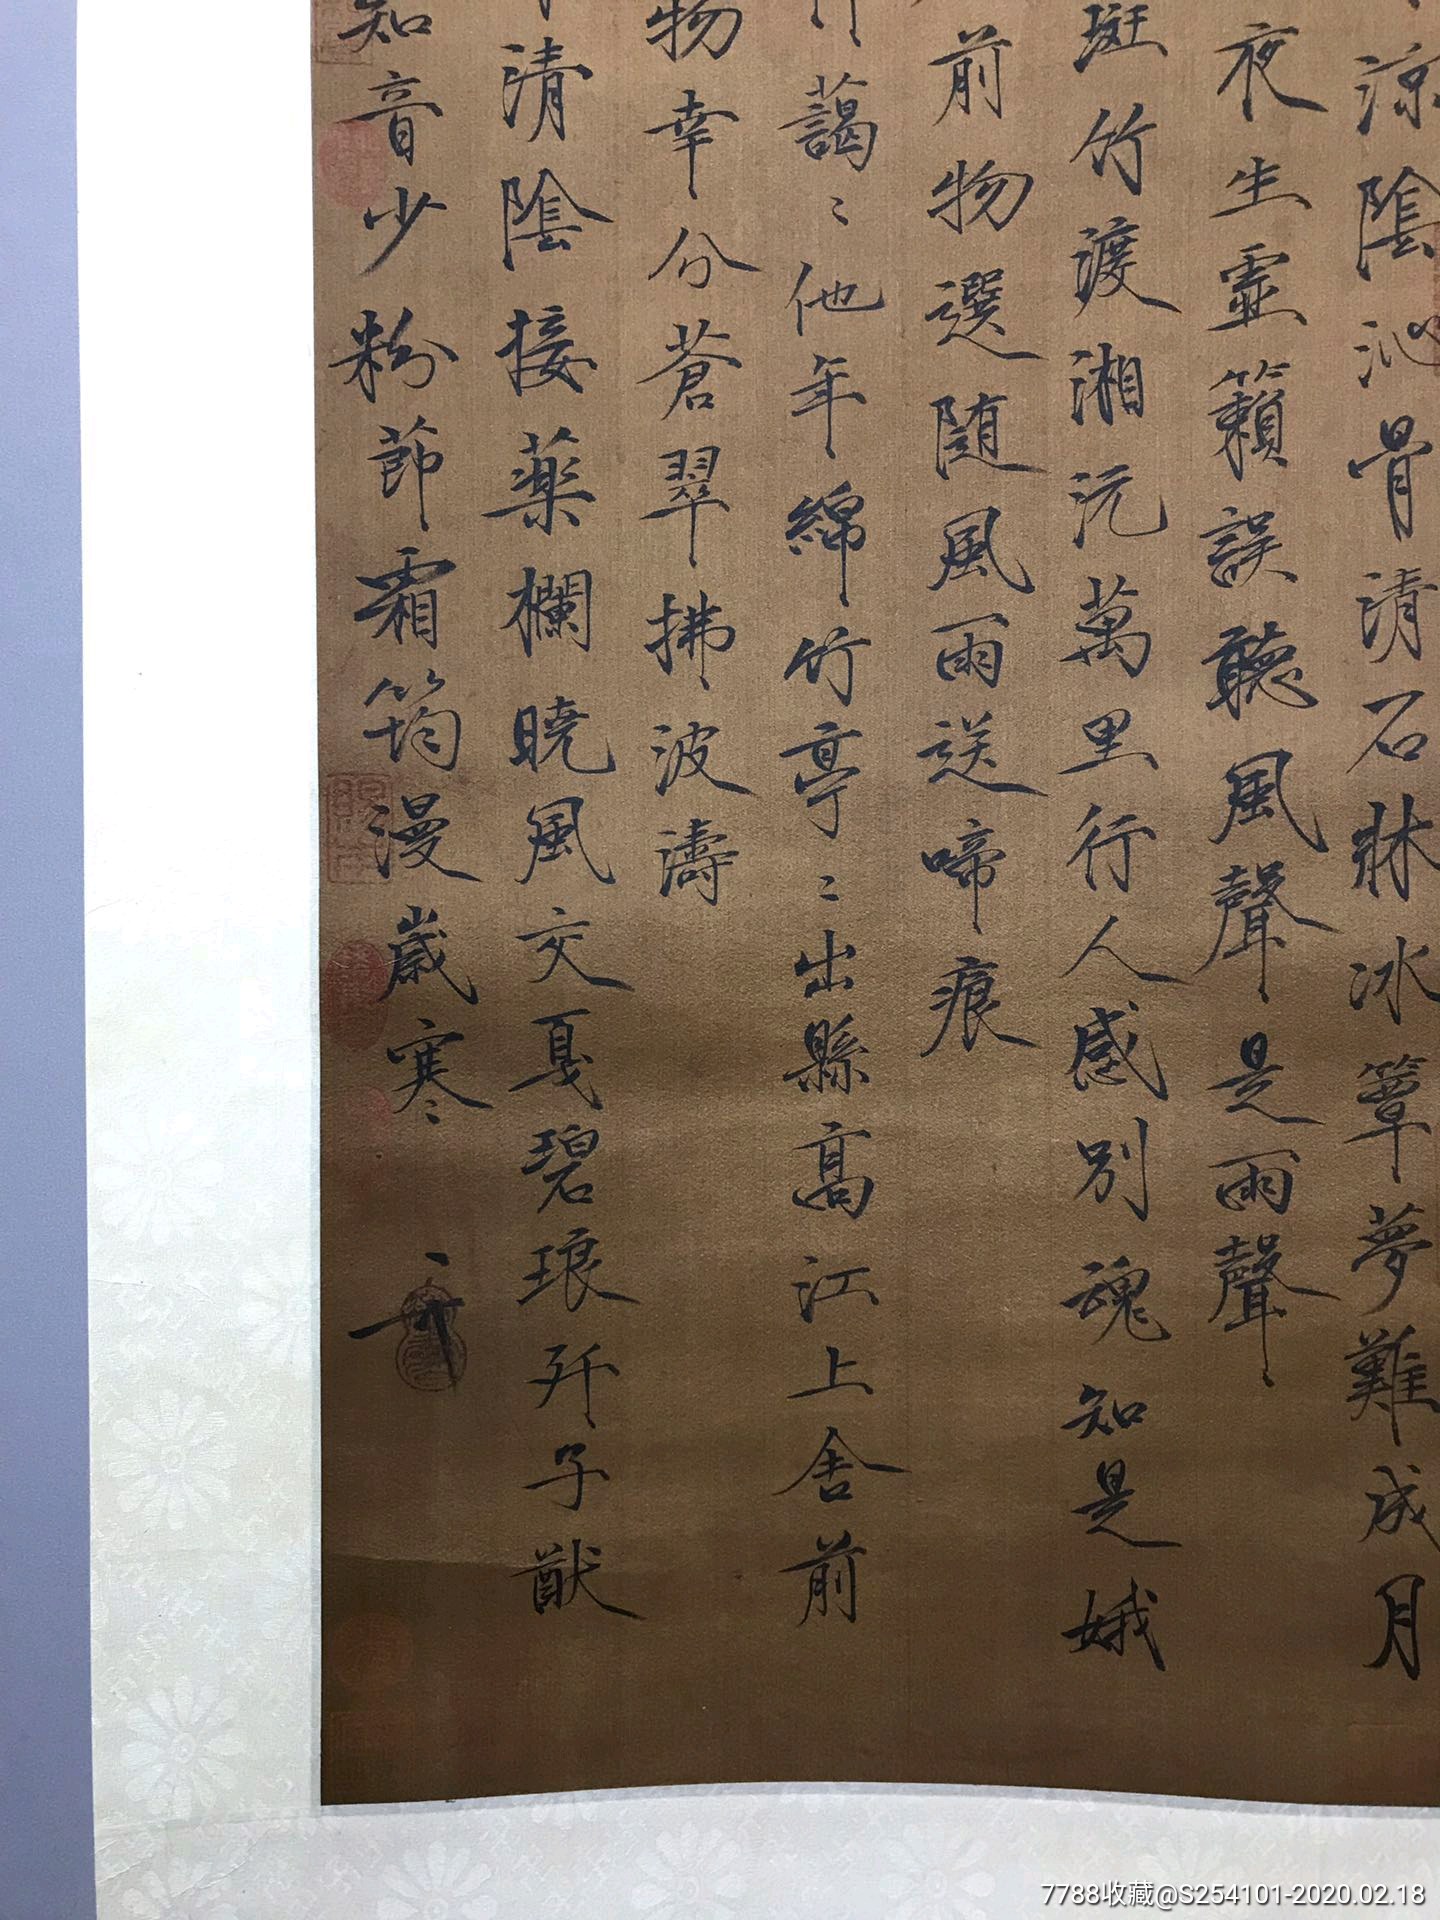 涼陰沁骨清石牀冰簟夢難成月
夜生靈籟誤聽風聲是雨聲
斑竹渡湘沅萬里行人感別魂知是娥
前物選随風雨送啼痕
藹〻他年綿竹亭〻出縣高江上舍前
物幸分蒼翠拂波濤
清陰接藥欄曉風交戛碧琅玕子猷
知音少粉節霜筠漫歲寒
7788收藏@S254101-2020.02.18